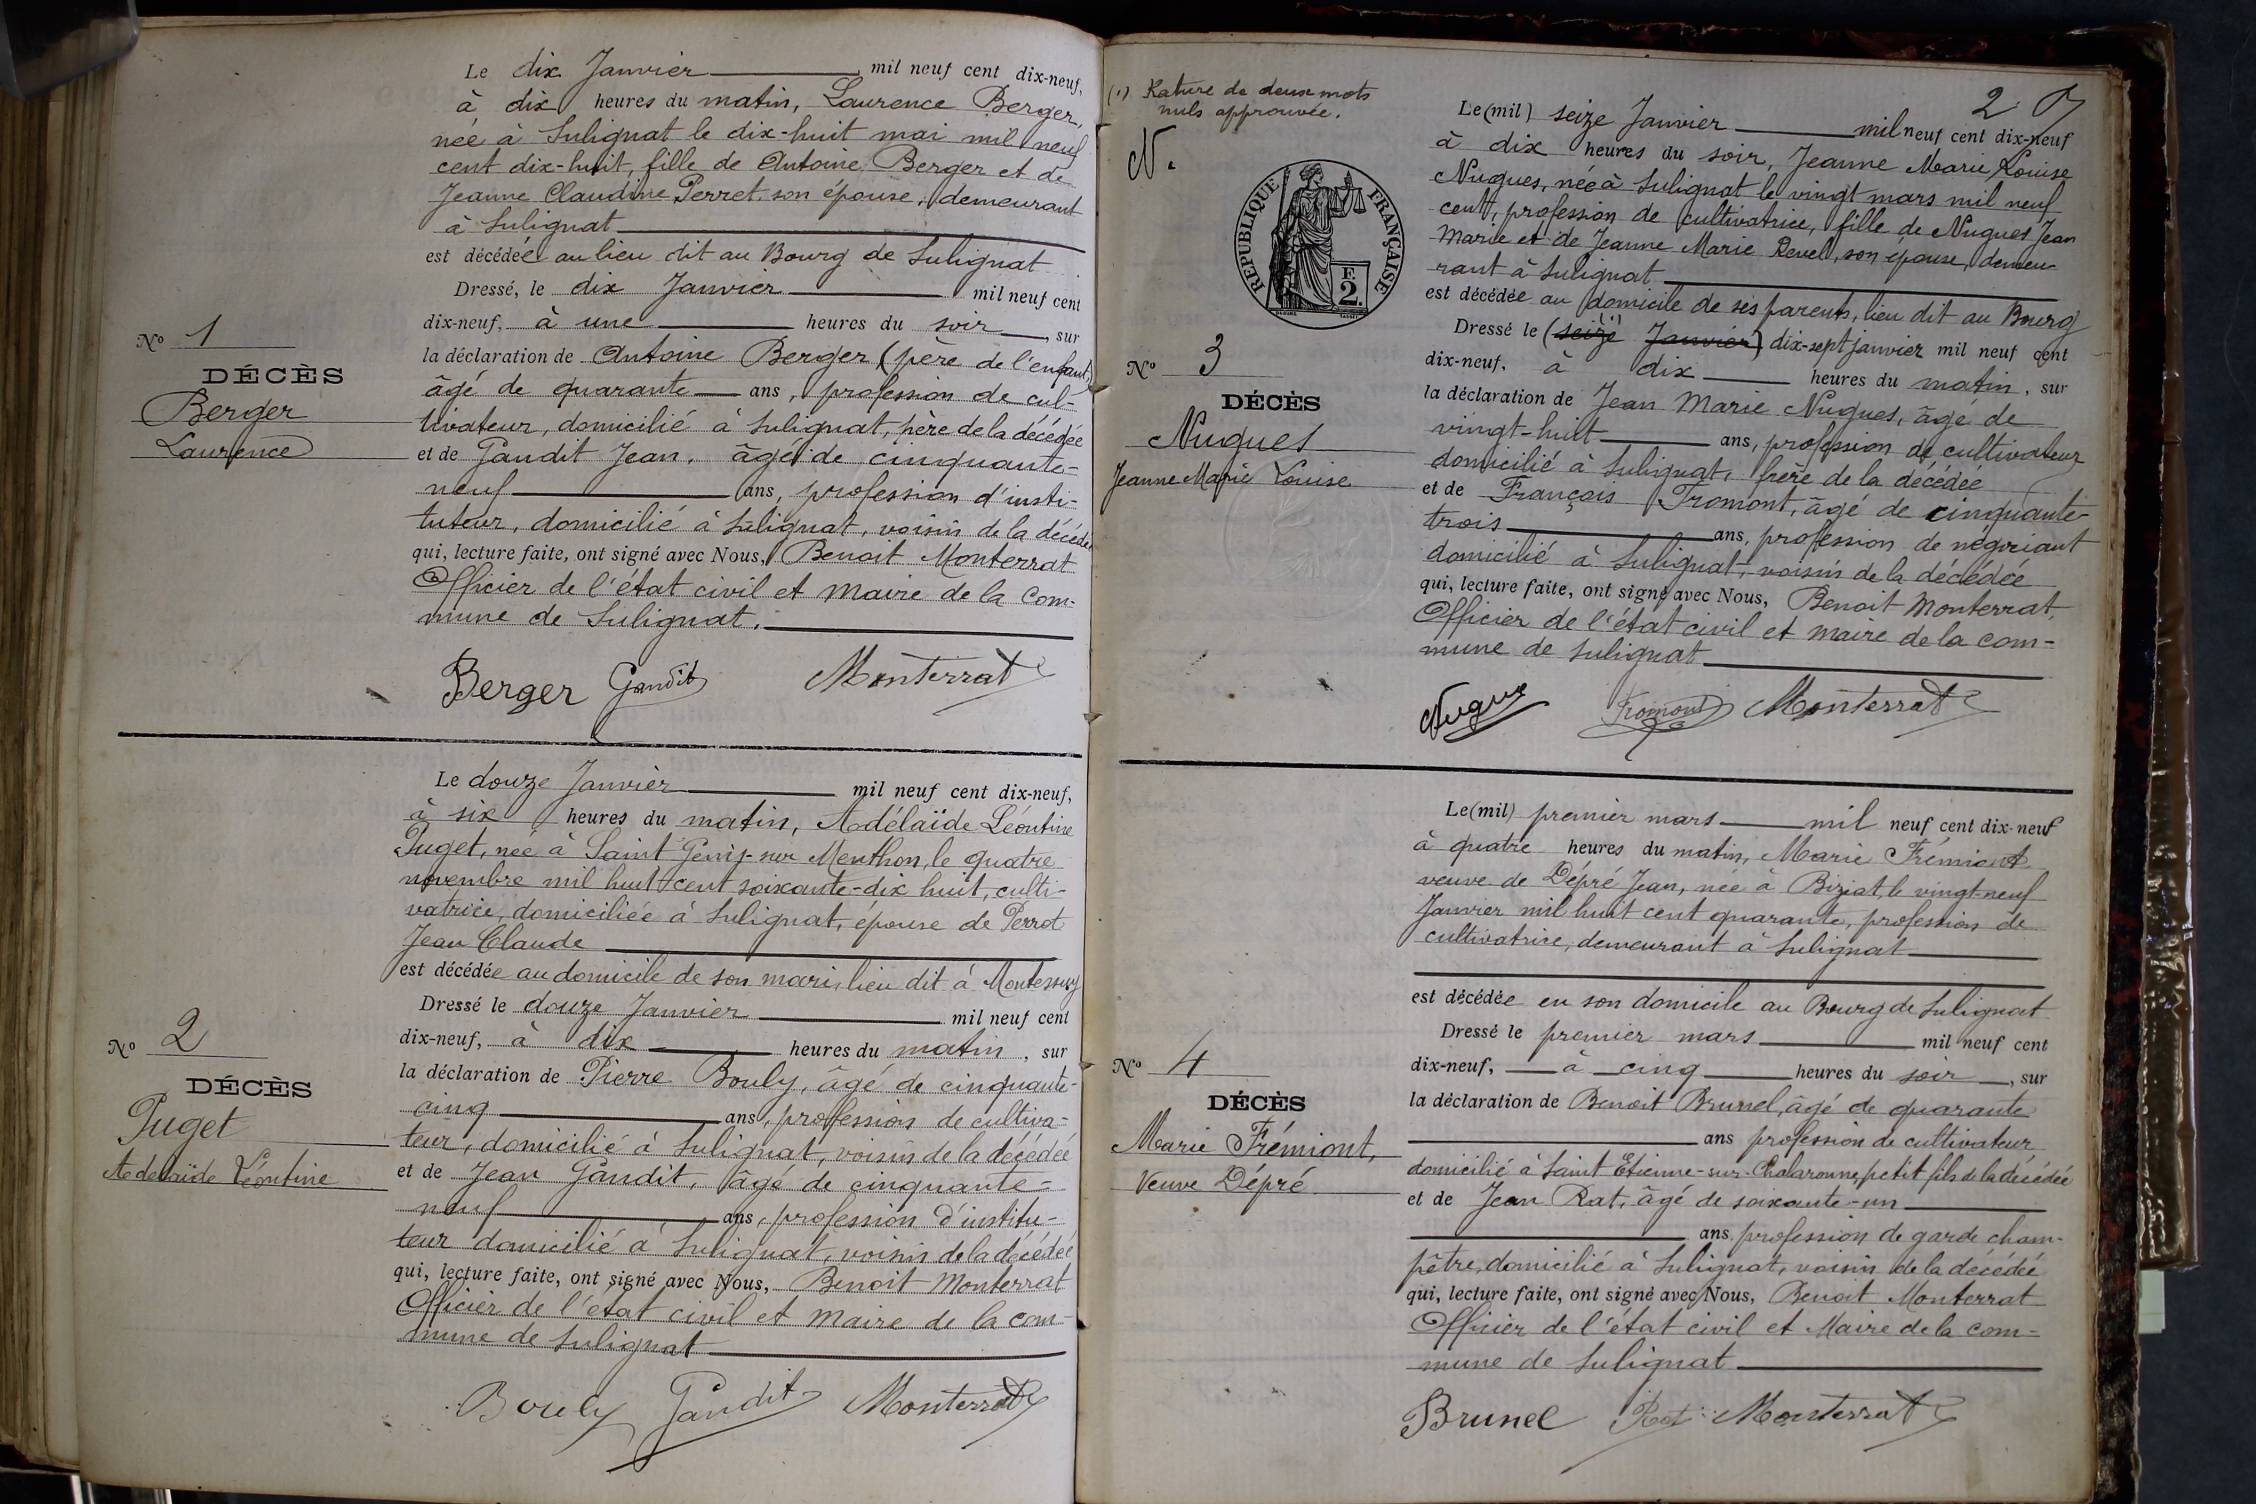 Le dix Janvier mil neuf cent dix-neuf,
à dix heures du matin, Laurence Berger,
née à Sulignat le dix-huit mai mil neuf
cent dix-huit, fille de Antoine Berger et de
Jeanne Claudine Perret, son épouse, demeurant
à Sulignat
est décédée au lieu dit au Bourg de Sulignat
Dressé, le dix Janvier mil neuf cent
dix-neuf, à une heures du soir, sur
la déclaration de Antoine Berger (père de l'enfant)
âgé de quarante ans, profession de cul-
tivateur, domicilié à Sulignat, père de la décédée
et de Gandit Jean, âgé de cinquante-
neuf ans, profession d'insti-
tuteur, domicilié à Sulignat, voisin de la décédée
qui, lecture faite, ont signé avec Nous, Benoit Monterrat
Officier de l'état civil et Maire de la com-
mune de Sulignat.
Berger Gandit Monterrat
No 1
DÉCÈS
Berger
Laurence
Le douze Janvier mil neuf cent dix-neuf,
à six heures du matin, Adélaïde Léontine
Puget, née à Saint Genis-sur Menthon, le quatre
novembre mil huit cent soixante-dix huit, culti-
vatrice, domiciliée à Sulignat, épouse de Perrot
Jean Claude
est décédée au domicile de son mari, lieu dit à Montessuy
Dressé le douze Janvier mil neuf cent
dix-neuf, à dix heures du matin, sur
la déclaration de Pierre Bouly, âgé de cinquante-
cinq ans, profession de cultiva-
teur, domicilié à Sulignat, voisin de la décédée
et de Jean Gandit, âgé de cinquante-
neuf ans, profession d'institu-
teur domicilié à Sulignat, voisin de la décédée
qui, lecture faite, ont signé avec Nous, Benoit Monterrat
Officier de l'état civil et Maire de la com-
mune de Sulignat
Bouly Gandit Monterrat
No 2
DÉCÈS
Puget
Adelaïde Léontine
(1) Rature de deux mots
nuls approuvée.
N.
RÉPUBLIQUE FRANÇAISE
F.
2.
2
Le (mil) seize Janvier mil neuf cent dix-neuf
à dix heures du soir, Jeanne Marie Louise
Nugues, née à Sulignat le vingt mars mil neuf
cent, profession de cultivatrice, fille de Nugues Jean
Marie et de Jeanne Marie Revel, son épouse, demeu-
rant à Sulignat
est décédée au domicile de ses parents, lieu dit au Bourg
Dressé le (seize Janvier) (1) dix-sept janvier mil neuf cent
dix-neuf, à dix heures du matin, sur
la déclaration de Jean Marie Nugues, âgé de
vingt-huit ans, profession de cultivateur
domicilié à Sulignat, frère de la décédée
et de François Fromont, âgé de cinquante-
trois ans, profession de négociant
domicilié à Sulignat, voisin de la décédée
qui, lecture faite, ont signé avec Nous, Benoit Monterrat,
Officier de l'état civil et maire de la com-
mune de Sulignat
Nugues Fromont Monterrat
No 3
DÉCÈS
Nugues
Jeanne Marie Louise
Le (mil) premier mars mil neuf cent dix-neuf
à quatre heures du matin, Marie Frémiont
veuve de Dépré Jean, née à Biziat, le vingt-neuf
Janvier mil huit cent quarante, profession de
cultivatrice, demeurant à Sulignat
est décédée en son domicile au Bourg de Sulignat
Dressé le premier mars mil neuf cent
dix-neuf, à cinq heures du soir, sur
la déclaration de Benoit Brunel, âgé de quarante
ans profession de cultivateur
domicilié à Saint Etienne-sur-Chalaronne, petit fils de la décédée
et de Jean Rat, âgé de soixante-un
ans, profession de garde cham-
pêtre, domicilié à Sulignat, voisin de la décédée
qui, lecture faite, ont signé avec Nous, Benoit Monterrat
Officier de l'état civil et Maire de la com-
mune de Sulignat
Brunel Rat Monterrat
No 4
DÉCÈS
Marie Frémiont,
Veuve Dépré